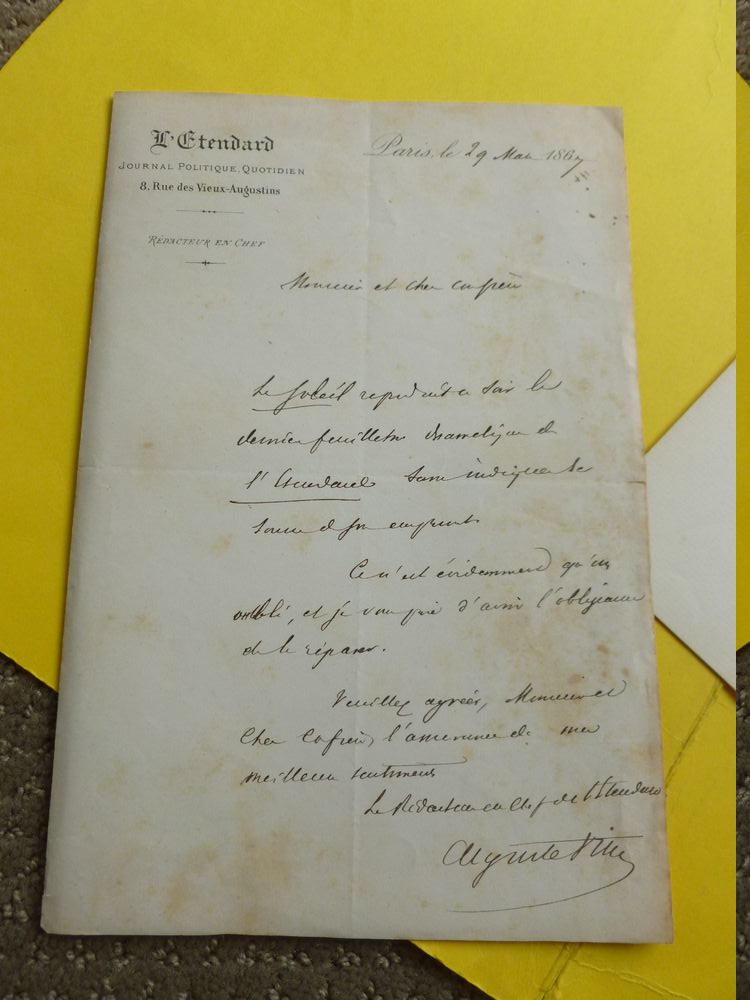 L'Etendard
JOURNAL POLITIQUE, QUOTIDIEN
8, Rue des Vieux-Augustins
RÉDACTEUR EN CHEF
Paris, le 29 Mai 1867
Monsieur et cher confrère
Le Soleil reproduit ce soir le
dernier feuilleton dramatique de
l'Etendard sans indiquer la
source de son emprunt.
Ce n'est évidemment qu'un
oubli, et je vous prie d'avoir l'obligeance
de le réparer.
Veuillez agréer, Monsieur et
Cher Confrère, l'assurance de mes
meilleurs sentiments
Le Rédacteur en Chef de l'Etendard
Auguste Vitu